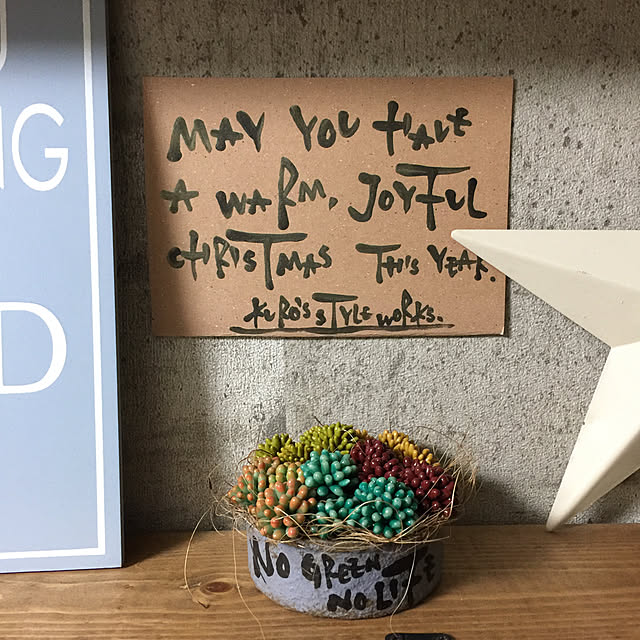 NG
D
MAY YOU HAVE
A WARM, JOYFUL
CHRISTMAS THIS YEAR.
KURO'S STYLE WORKS.
NO GREEN
NO LIFE